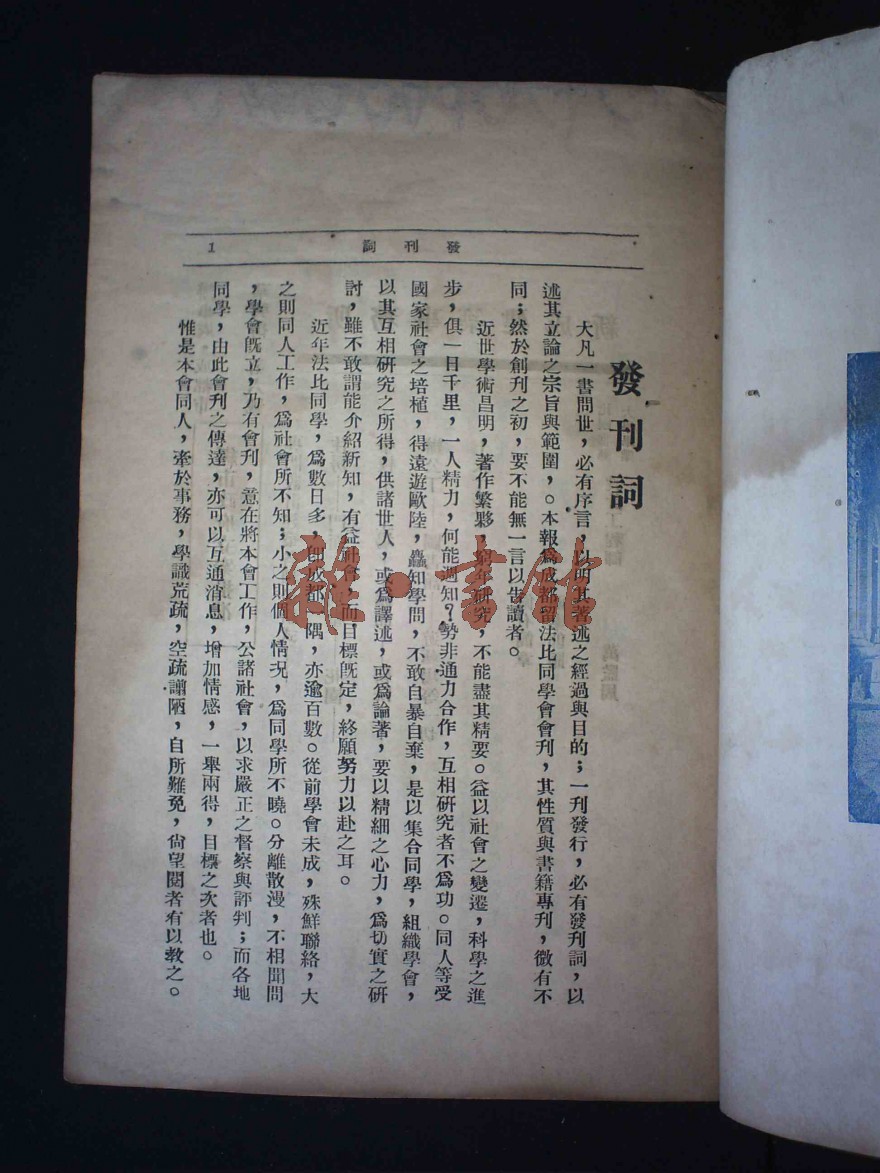 發刊詞
1
發刊詞
大凡一書問世，必有序言，以明其著述之經過與目的；一刊發行，必有發刊詞，以
述其立論之宗旨與範圍，。本報爲成都留法比同學會會刊，其性質與書籍專刊，微有不
同；然於創刊之初，要不能無一言以告讀者。
近世學術昌明，著作繁夥，窮年研究，不能盡其精要。益以社會之變遷，科學之進
步，俱一日千里，一人精力，何能週知？勢非通力合作，互相研究者不爲功。同人等受
國家社會之培植，得遠遊歐陸，蠡知學問，不敢自暴自棄，是以集合同學，組織學會，
以其互相研究之所得，供諸世人，或爲譯述，或爲論著，要以精細之心力，爲切實之研
討，雖不敢謂能介紹新知，有益社會，而目標旣定，終願努力以赴之耳。
近年法比同學，爲數日多，卽成都一隅，亦逾百數。從前學會未成，殊鮮聯絡，大
之則同人工作，爲社會所不知；小之則個人情况，爲同學所不曉。分離散漫，不相聞問
，學會旣立，乃有會刊，意在將本會工作，公諸社會，以求嚴正之督察與評判；而各地
同學，由此會刊之傳達，亦可以互通消息，增加情感，一舉兩得，目標之次者也。
惟是本會同人，牽於事務，學識荒疏，空疏譾陋，自所難免，尙望閱者有以敎之。
雜·書館